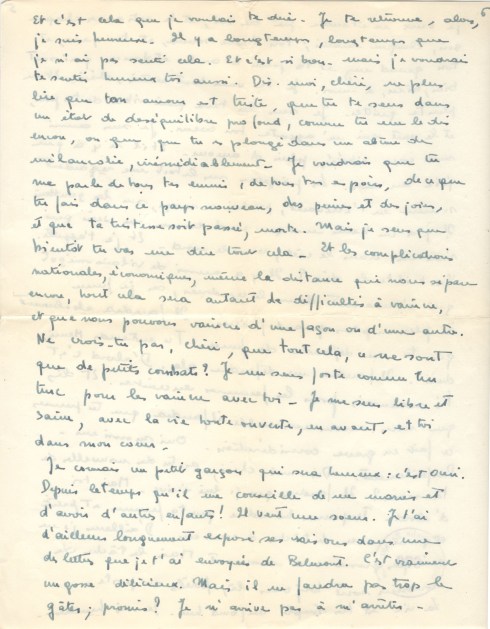 6
Et c'est cela que je voulais te dire. Je te retrouve, alors,
je suis heureuse. Il y a longtemps, longtemps que
je n'ai pas senti cela. Et c'est si bon. Mais je voudrais
te sentir heureux toi aussi. Dis-moi, chéri, ne plus
lire que ton amour est triste, que tu te sens dans
un état de déséquilibre profond, comme tu me le dis
encore, ou que tu plongé dans un abîme de
mélancolie, irrémédiablement. Je voudrais que tu
me parle de tous tes ennuis, de tous tes espoirs, de ce que
tu fais dans ce pays nouveau, des peines et des joies,
et que ta tristesse soit passé, morte. Mais je sens que
bientôt tu vas me dire tout cela. Et les complications
nationales, économiques, même la distance qui nous sépare
encore, tout cela sera autant de difficultés à vaincre,
et que nous pouvons vaincre d'une façon ou d'une autre.
Ne crois-tu pas, chéri, que tout cela, ce ne sont
que de petits combats? Je me sens forte comme un
turc pour les vaincre avec toi. Je me sens libre et
saine, avec la vie toute ouverte, en avant, et toi
dans mon coeur.
Je connais un petit garçon qui sera heureux: c'est
Depuis le temps qu'il me conseille de me marier et
d'avoir d'autres enfants! Il veut une soeur. Je t'ai
d'ailleurs longuement exposé ses raisons dans une
des lettres que je t'ai envoyés de Belmont. C'est vraiment
un gosse délicieux. Mais il ne faudra pas trop le
gâter; promis? Je n'arrive pas à m'arrêter -